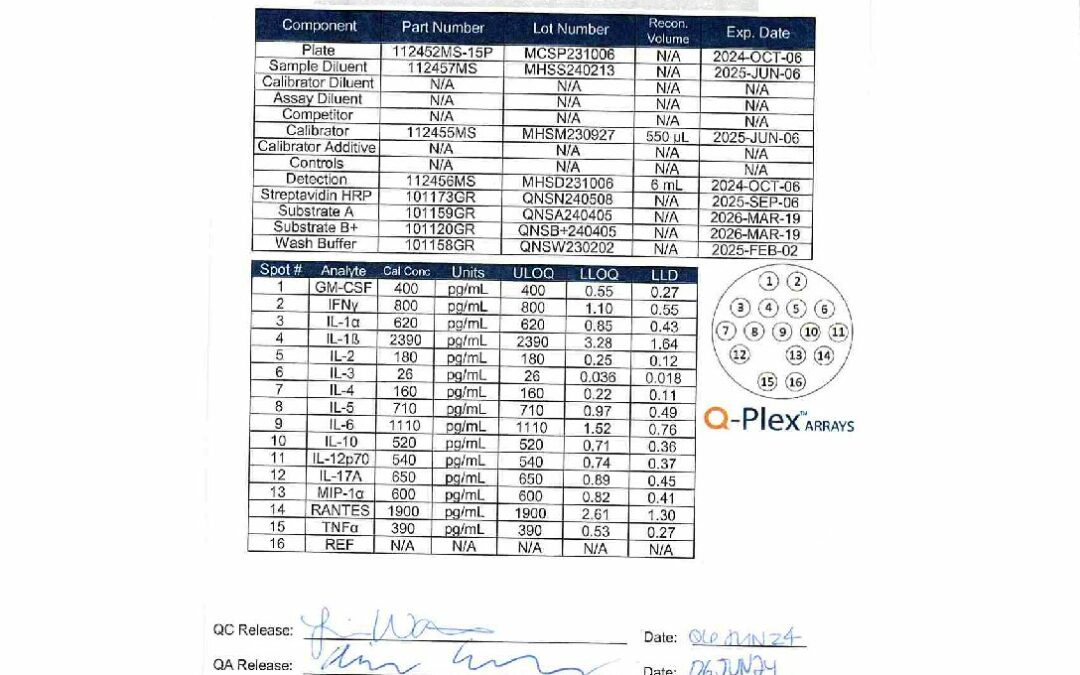 Component Part Number Lot Number Recon. Volume Exp. Date
Plate 112452MS-15P MCSP231006 N/A 2024-OCT-06
Sample Diluent 112457MS MHSS240213 N/A 2025-JUN-06
Calibrator Diluent N/A N/A N/A N/A
Assay Diluent N/A N/A N/A N/A
Competitor N/A N/A N/A N/A
Calibrator 112455MS MHSM230927 550 µL 2025-JUN-06
Calibrator Additive N/A N/A N/A N/A
Controls N/A N/A N/A N/A
Detection 112456MS MHSD231006 6 mL 2024-OCT-06
Streptavidin HRP 101173GR QNSN240508 N/A 2025-SEP-06
Substrate A 101159GR QNSA240405 N/A 2026-MAR-19
Substrate B+ 101120GR QNSB+240405 N/A 2026-MAR-19
Wash Buffer 101158GR QNSW230202 N/A 2025-FEB-02
Spot # Analyte Cal Conc Units ULOQ LLOQ LLD
1 GM-CSF 400 pg/mL 400 0.55 0.27
2 IFNγ 800 pg/mL 800 1.10 0.55
3 IL-1α 620 pg/mL 620 0.85 0.43
4 IL-1ß 2390 pg/mL 2390 3.28 1.64
5 IL-2 180 pg/mL 180 0.25 0.12
6 IL-3 26 pg/mL 26 0.036 0.018
7 IL-4 160 pg/mL 160 0.22 0.11
8 IL-5 710 pg/mL 710 0.97 0.49
9 IL-6 1110 pg/mL 1110 1.52 0.76
10 IL-10 520 pg/mL 520 0.71 0.36
11 IL-12p70 540 pg/mL 540 0.74 0.37
12 IL-17A 650 pg/mL 650 0.89 0.45
13 MIP-1α 600 pg/mL 600 0.82 0.41
14 RANTES 1900 pg/mL 1900 2.61 1.30
15 TNFα 390 pg/mL 390 0.53 0.27
16 REF N/A N/A N/A N/A N/A
1 2
3 4 5 6
7 8 9 10 11
12 13 14
15 16
Q-Plex™ ARRAYS
QC Release: Date: 06 JUN 24
QA Release: Date: 06 JUN 24